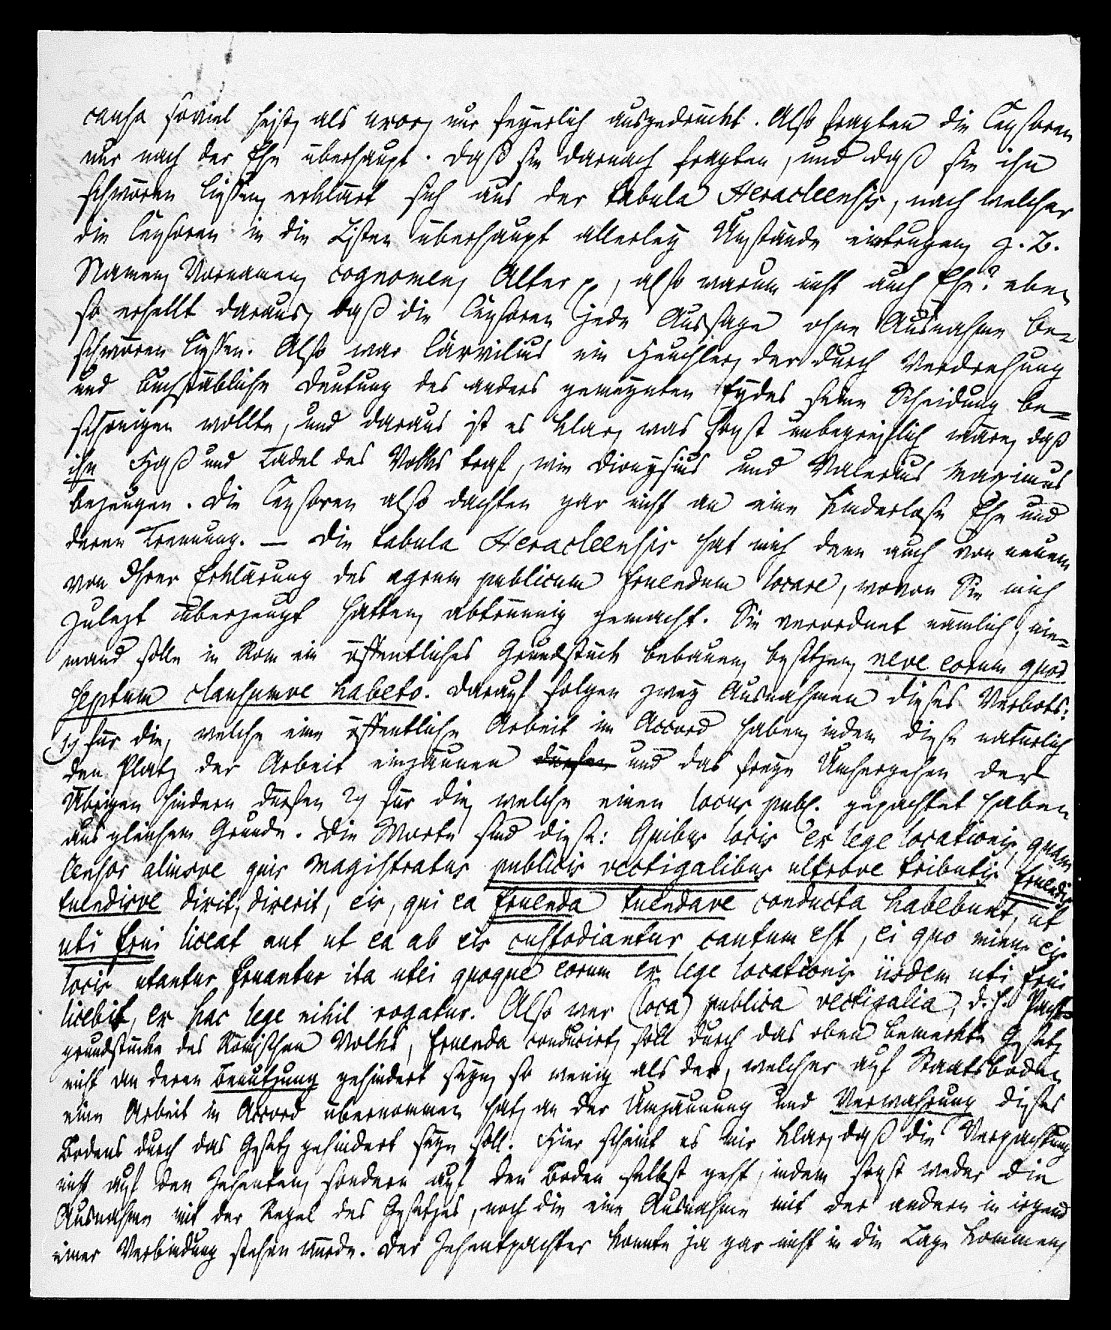 causa soviel heist, als uxor, nur feyerlich ausgedrückt. Also fragten die Censoren
nur nach der Ehe überhaupt. Daß sie darnach fragten, und daß sie ihn
schwören liessen, erklärt sich aus der tabula Heracleensis, nach welcher
die Censoren in die Listen überhaupt allerley Umstände eintrugen, z. B.
Namen, Vornamen, cognomen, Alter, also warum nicht auch Ehe? eben
so erhellt daraus, daß die Censoren jede Aussage ohne Ausnahme be=
schwören liessen. Also war Carvilius ein Heuchler, der durch Verdrehung
und buchstäbliche Deutung des anders gemeynten Eydes seine Scheidung be=
schönigen wollte, und daraus ist es klar, was sonst unbegreiflich wäre, daß
ihn Haß und Tadel des Volks traf, wie Dionysius und Valerius Maximus
bezeugen. Die Censoren also dachten gar nicht an eine kinderlose Ehe und
deren Trennung. — Die tabula Heracleensis hat mich denn auch von neuem
von Ihrer Erklärung des agrum publicum fruendum locare, wovon Sie mich
zulezt überzeugt hatten, abtrünnig gemacht. Sie verordnet nämlich, nie=
mand solle in Rom ein öffentliches Grundstück bebauen, besitzen, neve eorum quod
septum clausumve habeto. Darauf folgen zwey Ausnahmen dieses Verbots:
1) für die, welche eine öffentliche Arbeit im Accord haben, indem diese natürlich
den Platz der Arbeit einzäunen und das freye Umhergehen der
Übrigen hindern dürfen 2) für die, welche einen locus publ. gepachtet haben
aus gleichem Grunde. Die Worte sind diese: Quibus locis ex lege locationis, quam
Censor aliusve quis magistratus publicis vectigalibus ultrove tributis fruendis
tuendisve dixit, dixerit, eis, qui ea fruenda tuendave conducta habebunt, ut
uti frui liceat aut ut ea ab eis custodiantur cautum est, ei quo minus eis
locis utantur fruantur ita utei quoque eorum ex lege locationis iisdem uti frui
licebit, ex hac lege nihil rogatur. Also wer (loca) publica vectigalia, d. h. Pacht=
grundstücke des Römischen Volks, fruenda conducirt, soll durch das oben bemerkte Gesetz
nicht an deren Benutzung gehindert seyn, so wenig als der, welcher auf Staatsboden
eine Arbeit in Accord übernommen hat, an der Umzäunung und Verwahrung dieses
Bodens durch das Gesetz gehindert seyn soll. Hier scheint es mir klar, daß die Verpachtung
nicht auf den Zehenten, sondern auf den Boden selbst geht, indem sonst weder die
Ausnahme mit der Regel des Gesetzes, noch die eine Ausnahme mit der andern in irgend
einer Verbindung stehen würde. Der Zehentpachter konnte ja gar nicht in die Lage kommen,